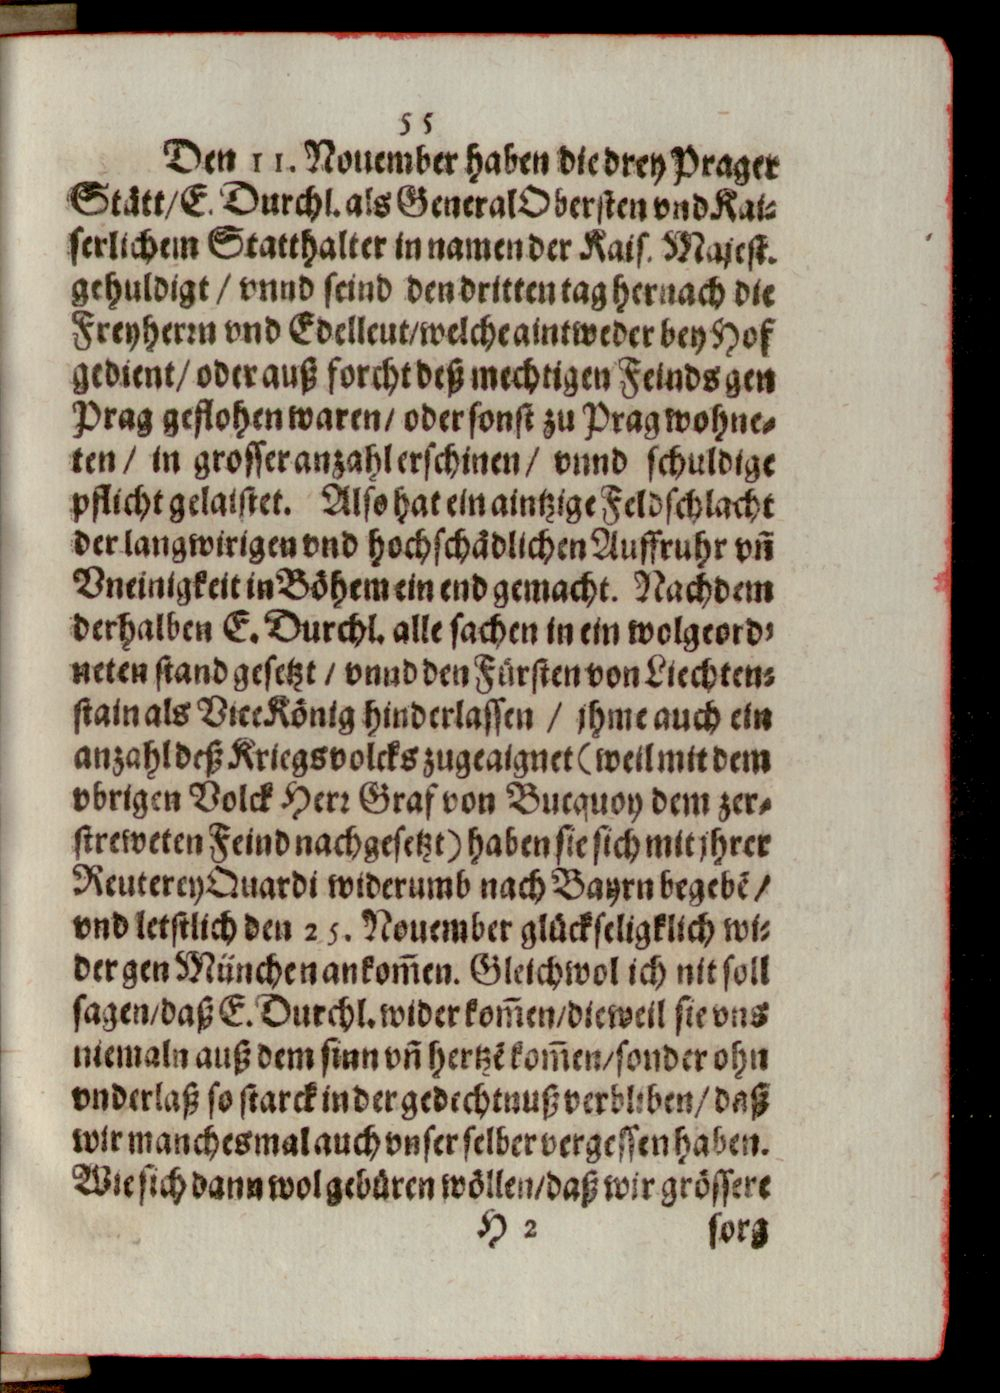 55
Den 11. Nouember haben die drey Prager
Stätt/ E. Durchl. als General Obersten vnd Kai-
serlichem Statthalter in namen der Kais. Majest.
gehuldigt / vnnd seind den dritten tag hernach die
Freyherrn vnd Edelleut/ welche aintweder bey Hof
gedient/ oder auß forcht deß mechtigen Feinds gen
Prag geflohen waren/ oder sonst zu Prag wohne-
ten / in grosser anzahl erschinen/ vnnd schuldige
pflicht gelaistet. Also hat ein aintzige Feldschlacht
der langwirigen vnd hochschädlichen Auffruhr vñ
Vneinigkeit in Böhem ein end gemacht. Nachdem
derhalben E. Durchl. alle sachen in ein wolgeord-
neten stand gesetzt / vnnd den Fürsten von Liechten-
stain als ViceKönig hinderlassen / jhme auch ein
anzahl deß Kriegsvolcks zugeaignet (weil mit dem
vbrigen Volck Herr Graf von Bucquoy dem zer-
streweten Feind nachgesetzt) haben sie sich mit jhrer
Reuterey Quardi widerumb nach Bayrn begebẽ /
vnd letstlich den 25. Nouember glückseligklich wi-
der gen München ankom̃en. Gleichwol ich nit soll
sagen/ daß E. Durchl. wider kom̃en/ dieweil sie vns
niemaln auß dem sinn vñ hertzẽ kom̃en/ sonder ohn
vnderlaß so starck in der gedechtnuß verbliben/ daß
wir manchesmal auch vnser selber vergessen haben.
Wie sich dann wol gebüren wöllen/ daß wir grössere
H 2 sorg